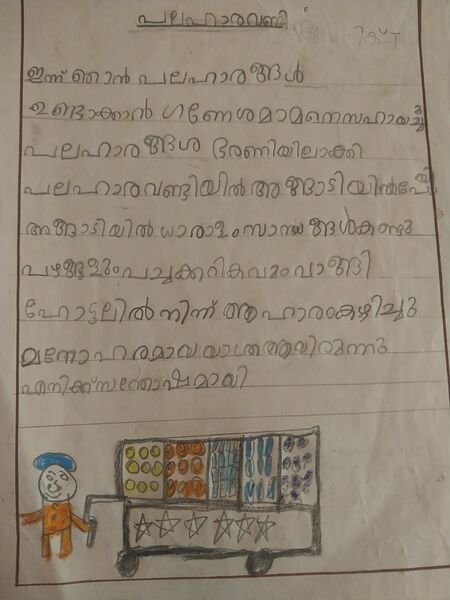 പലഹാരവണ്ടി
ഇന്ന് ഞാൻ പലഹാരങ്ങൾ
ഉണ്ടാക്കാൻ ഗണേശമാമനെസഹായിച്ചു
പലഹാരങ്ങൾ ഭരണിയിലാക്കി
പലഹാരവണ്ടിയിൽ അങ്ങാടിയിൽപോയി
അങ്ങാടിയിൽ ധാരാളംസാധനങ്ങൾകണ്ടു
പഴങ്ങളുംപച്ചക്കറികളുംവാങ്ങി
ഹോട്ടലിൽ നിന്ന് ആഹാരംകഴിച്ചു
മനോഹരമായയാത്രആയിരുന്നു
എനിക്ക്സന്തോഷമായി